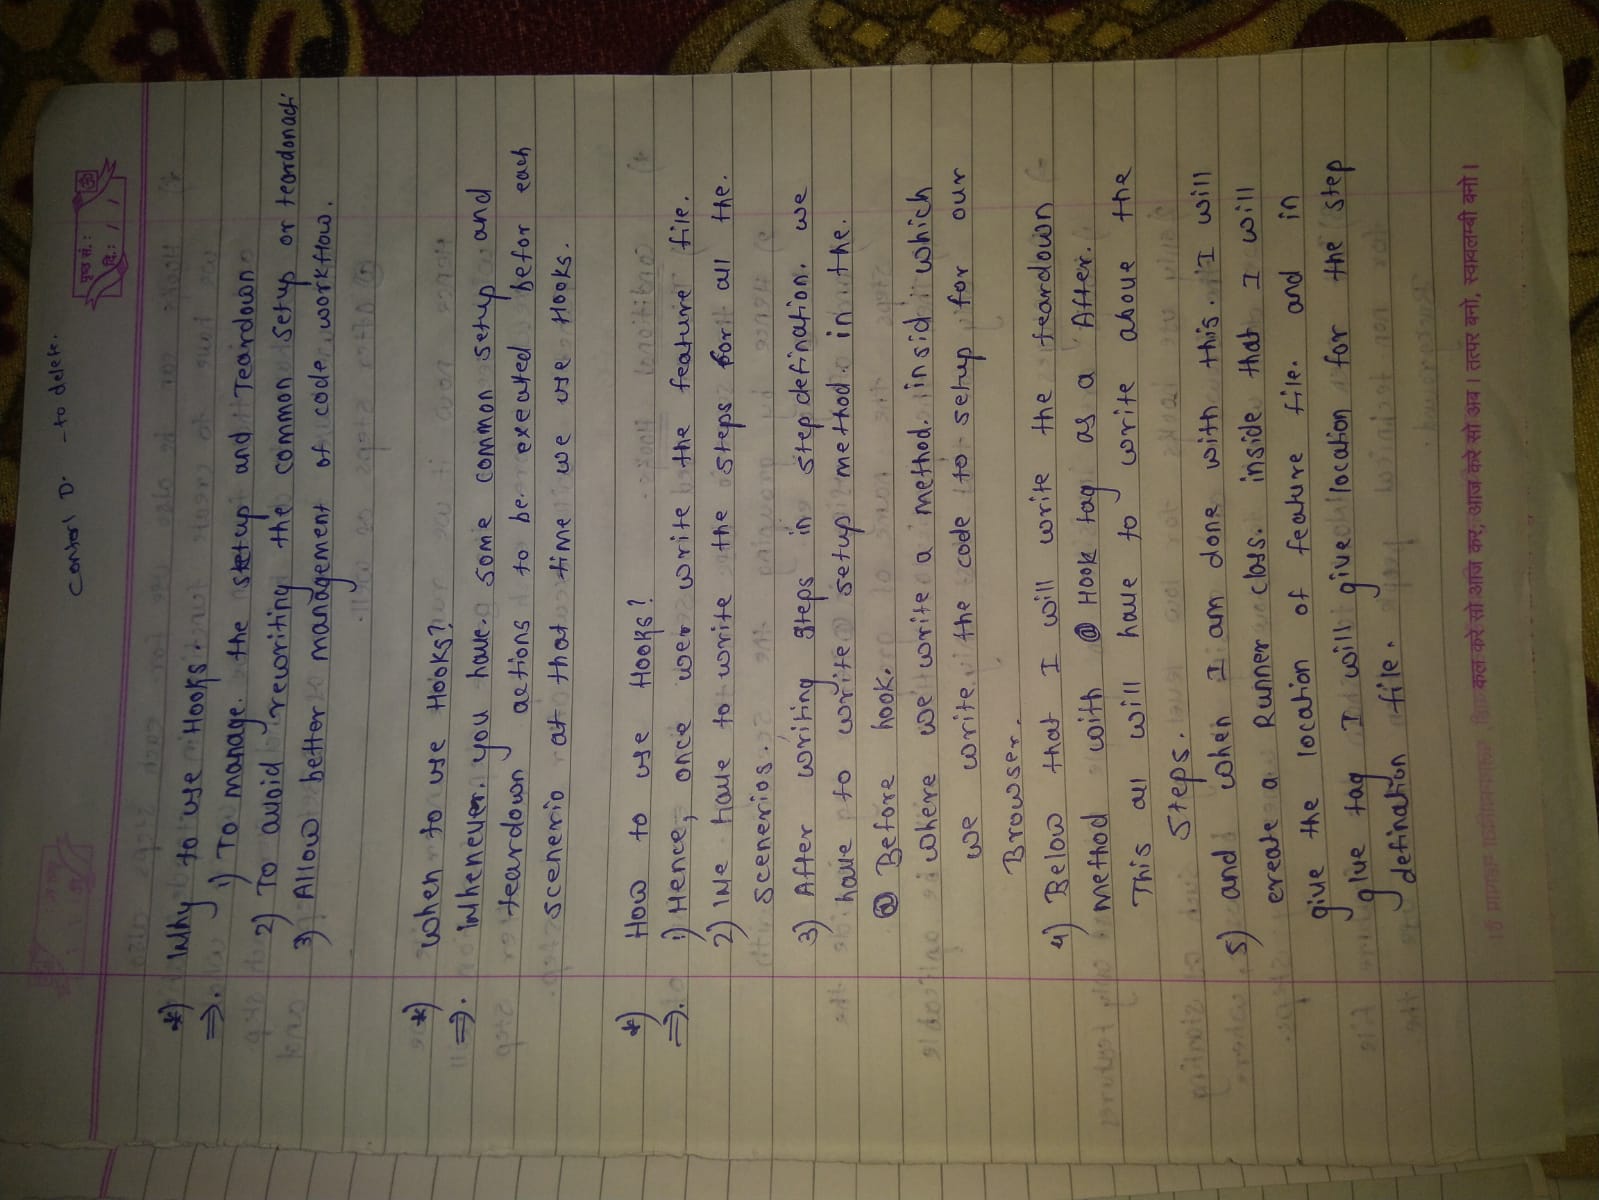 Contorl D. - to delete.
पृष्ठ सं.:
ॐ
दि.: / /
*) Why to use Hooks.
⇒. 1) To manage. the setup and Teardown
2) To avoid rewriting the common setup or teardonacti
3) Allow better management of code workflow.
*) When to use Hooks?
⇒. Whenever. you have. some common setup and
teardown actions to be. exeated befor each
scenerio at that time we use Hooks.
*) How to use Hooks?
⇒. 1) Hence, once wer write the feature file.
2) We have to write the steps for all the.
scenerios.
3) After writing steps in step defination. we
have to write setup method. in the.
@ Before hook.
where we write a method. insid which
we write the code to setup for our
Browser.
4) Below that I will write the teardown
method with @ Hook tag as a After.
This all will have to write above the
steps.
5) and when I am done with this. I will
create a Runner class. inside that I will
give the location of feature file. and in
glue tag I will give location for the step
defination file.
कल करे सो आज कर, आज करे सो अब । तत्पर बनो, स्वावलम्बी बनो ।